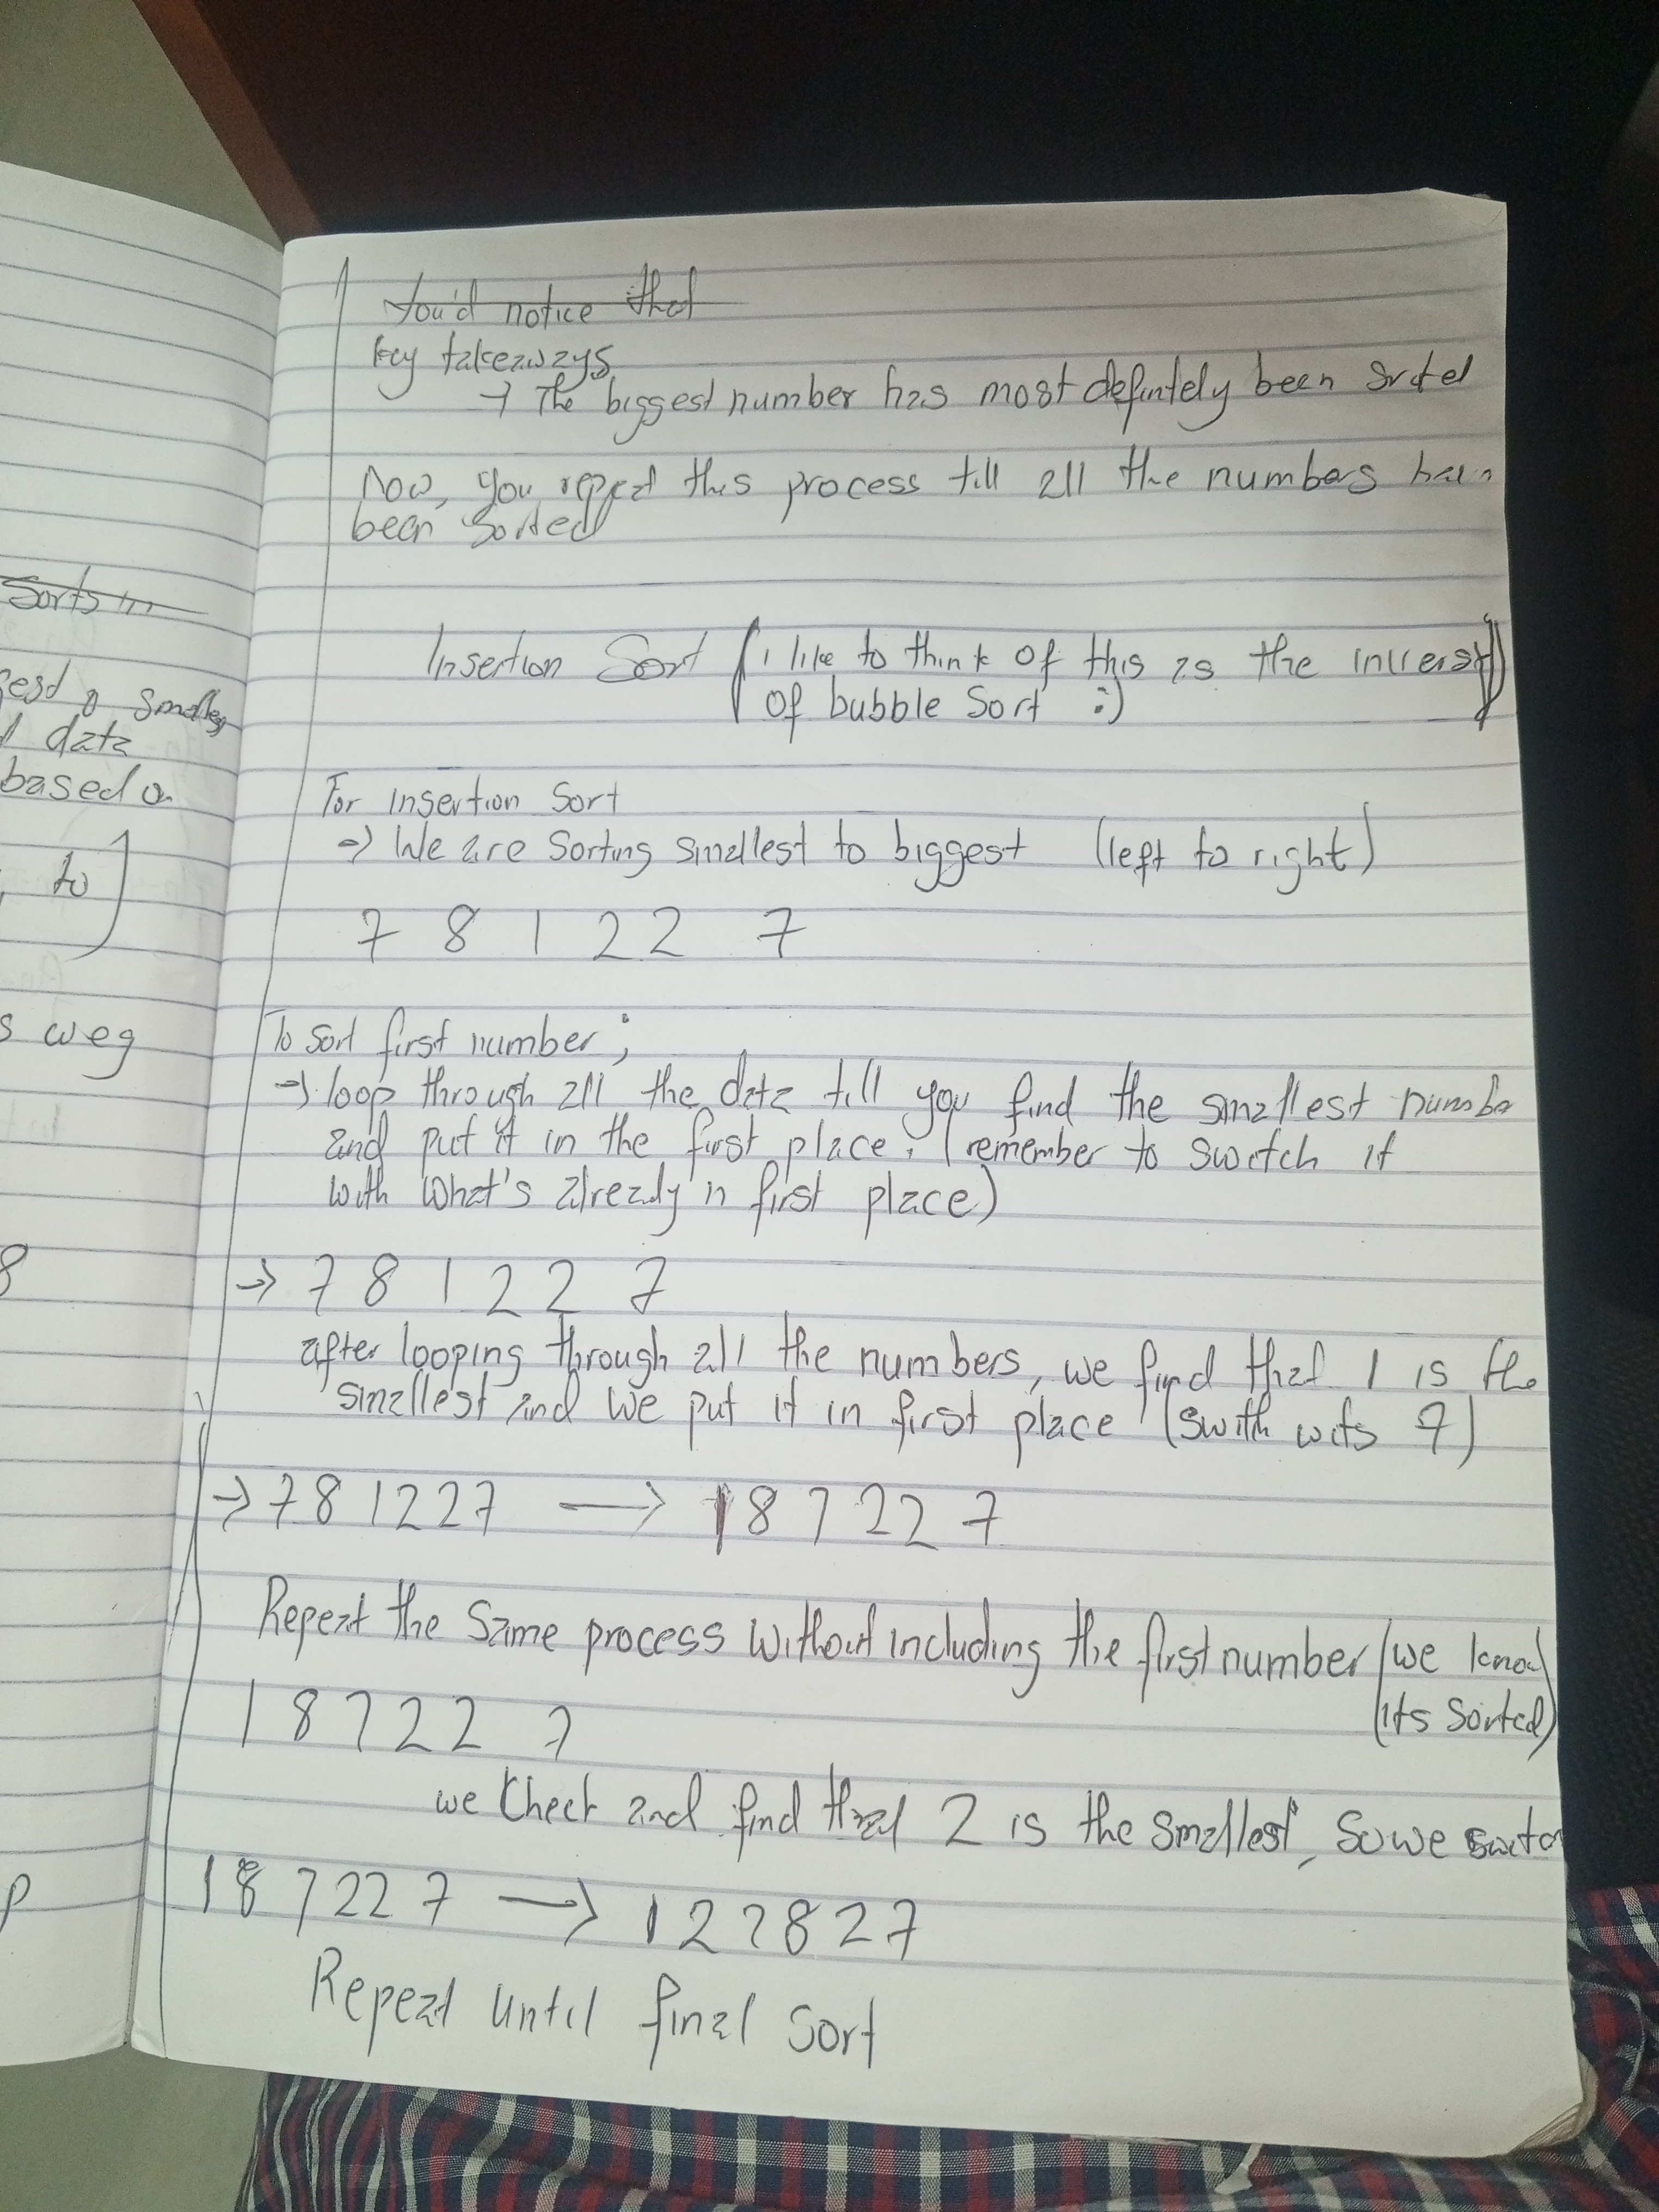 Sorts
& smalles
data
based o
to
s weg
8
p
You'd notice that
key takeaways
→ The biggest number has most defintely been
Now, you repeat this process till all the numbers
been sorted
Insertion Sort (i like to think of this as the
of bubble sort :)
For insertion sort
→ We are sorting smallest to biggest (left to right)
7 8 1 2 2 7
To sort first number;
→ loop through all the data till you find the smallest numbe
and put it in the first place. (remember to switch it
with what's already in first place)
→ 7 8 1 2 2 7
after looping through all the numbers, we find that 1 is the
smallest and we put it in first place (swith 7)
→ 7 8 1 2 2 7 → 1 8 7 2 2 7
Repeat the same process without including the first number (we know
its sorted)
1 8 7 2 2 7
we check and find that 2 is the smallest, so we
1 8 7 2 2 7 → 1 2 7 8 2 7
Repeat until final sort